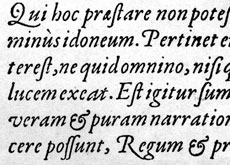 Qui hoc præstare non potes
minùs idoneum. Pertinet e
terest, ne quid omnino, nisi q
lucem exeat. Est igitur sum
veram & puram narration
cere possunt, Regum & pr